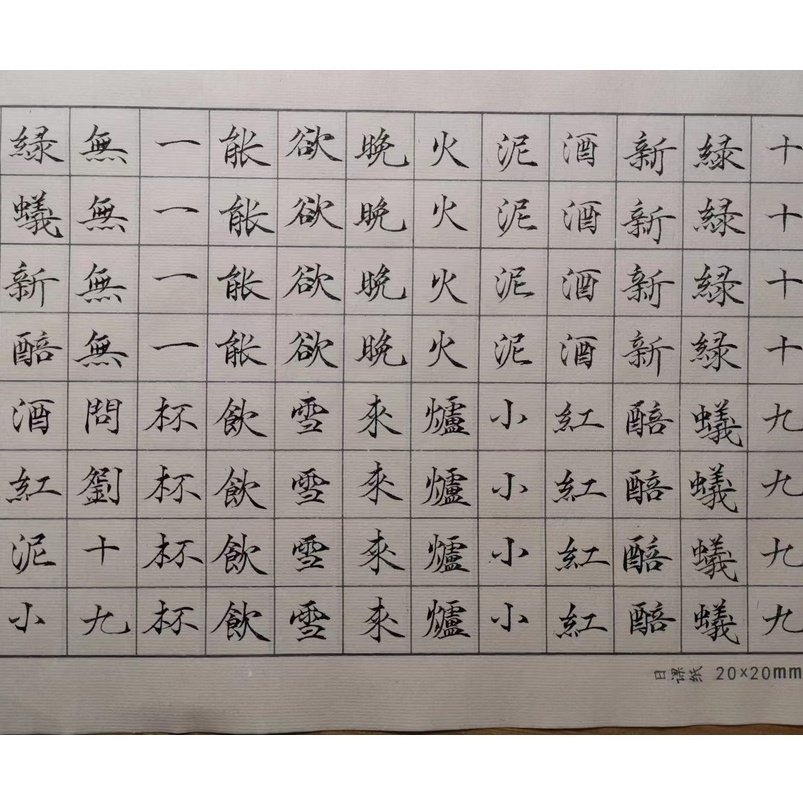 十十十十九九九九
緑緑緑緑蟻蟻蟻蟻
新新新新醅醅醅醅
酒酒酒酒紅紅紅紅
泥泥泥泥小小小小
火火火火爐爐爐爐
晚晚晚晚來來來來
欲欲欲欲雪雪雪雪
能能能能飲飲飲飲
一一一一杯杯杯杯
無無無無問劉十九
緑蟻新醅酒紅泥小
日课纸 20×20mm